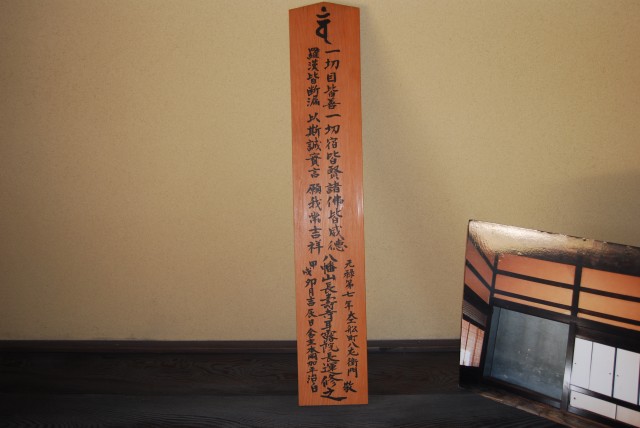 一切日皆善一切宿皆賢諸佛皆威德
羅漢皆断漏以斯誠實言願我常吉祥
元禄第七年 大舩町八左衛門 敬
八幡山長壽寺 院長運修之
甲戌 卯月吉辰日